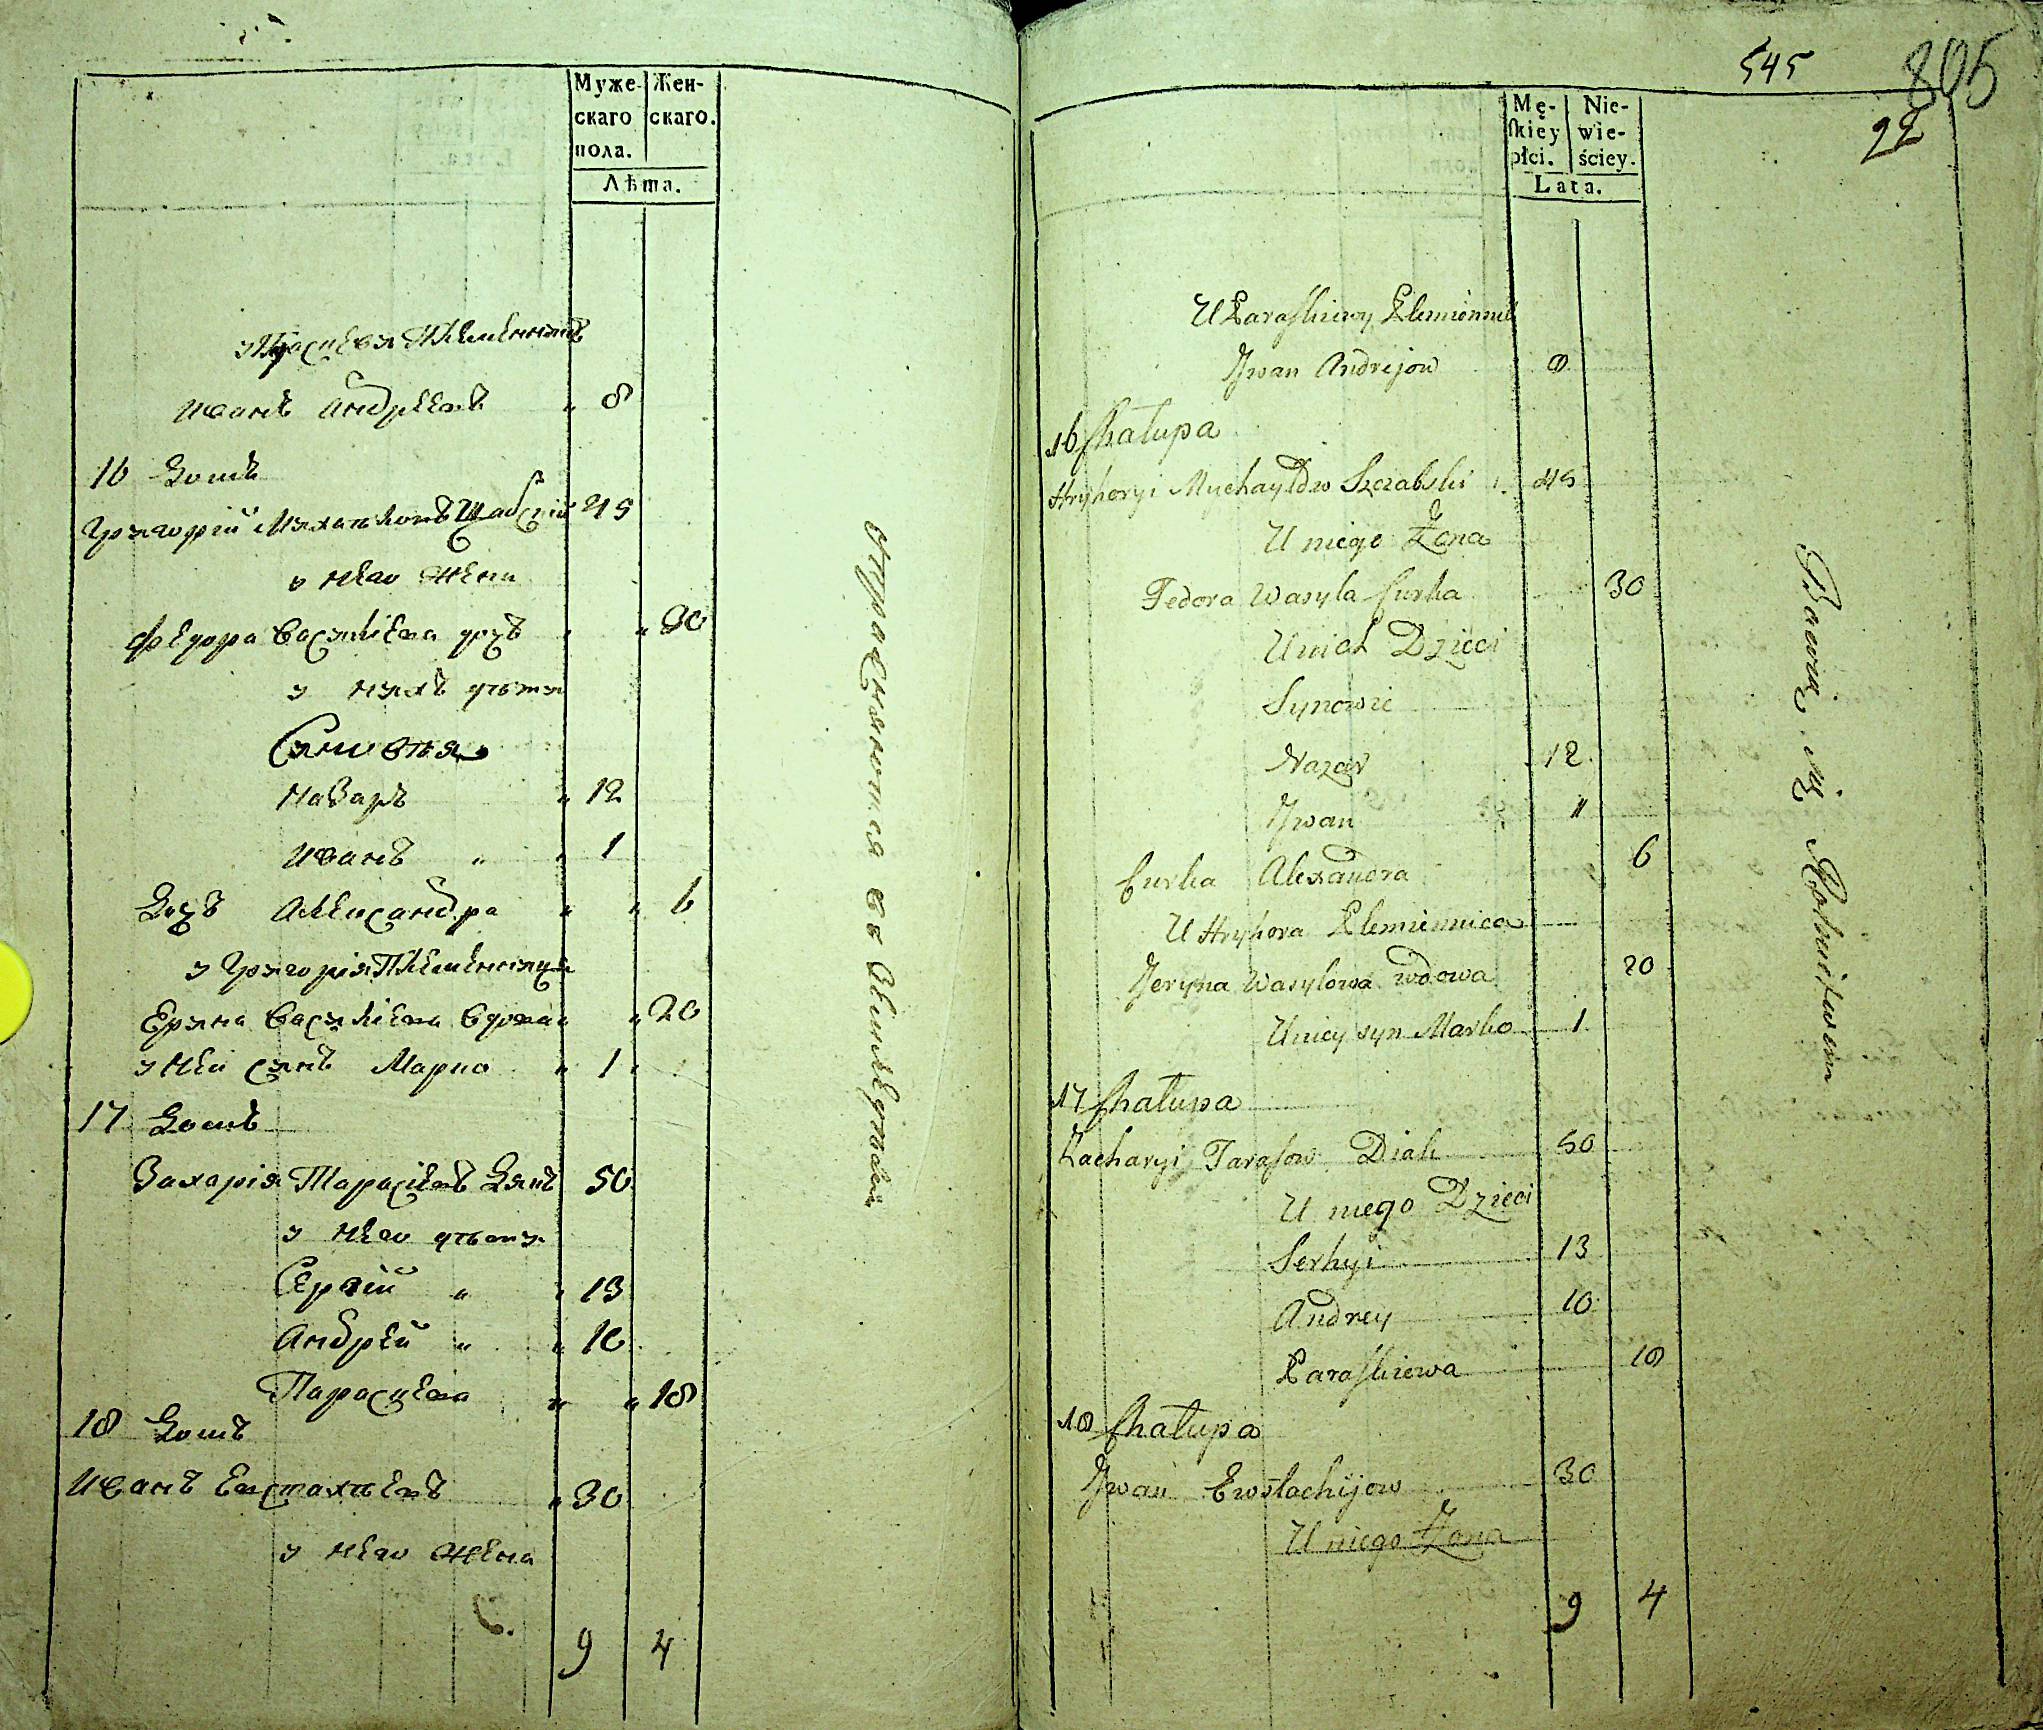 Муже-
скаго
пола.
Жен-
скаго.
Лѣта.
у Парасцевѧ Племѣнникъ
Иванъ Андрѣевъ 8
16 Домъ
Григорій Михайловъ Щабскій 45
у него жена
Федора Василіева дочъ 30
у нихъ дѣти
Синовья
Назаръ 12
Иванъ 1
Дочъ Александра 6
у Григорія Племенница
Ерина Василіева вдова 20
у ней синъ Марко 1
17 Домъ
Захарія Тарасіевъ Дякъ 50
у него дѣти
Сергій 13
Андрей 10
Парасцева 18
18 Домъ
Иванъ Евстахѣевъ 30
у него жена
9 4
въ Земледѣліи
545
805
92
Mę-
ſkiey
płci.
Nie-
wie-
ściey.
Lata.
U Paraſkiewy Plemiennik
Jwan Andrijow 8
16 Chałupa
Hryhoryi Mychayłow Szczabski 45
U niego Żona
Fedora Wasyla Curka 30
U nich Dzieci
Synowie
Nazar 12
Jwan 1
Curka Alexandra 6
U Hryhora Plemiennica
Jeryna Wasylowa wdowa 20
U niey syn Marko 1
17 Chałupa
Zacharyi Taraſow Diak 50
U niego Dzieci
Serhyi 13
Andrey 10
Paraſkiewa 18
18 Chałupa
Jwan Ewstachijow 30
U niego Żona
9 4
Bawią się Rolnictwem